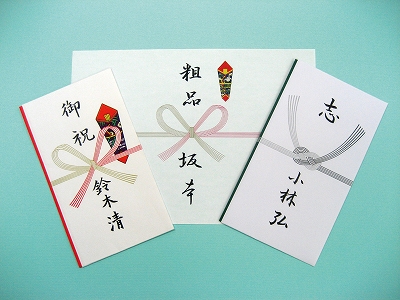 御祝
鈴木清
粗品
坂本
志
小林弘